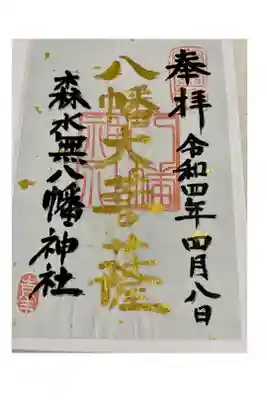 奉拝 令和四年 四月八日
八幡大菩薩
森水無八幡神社